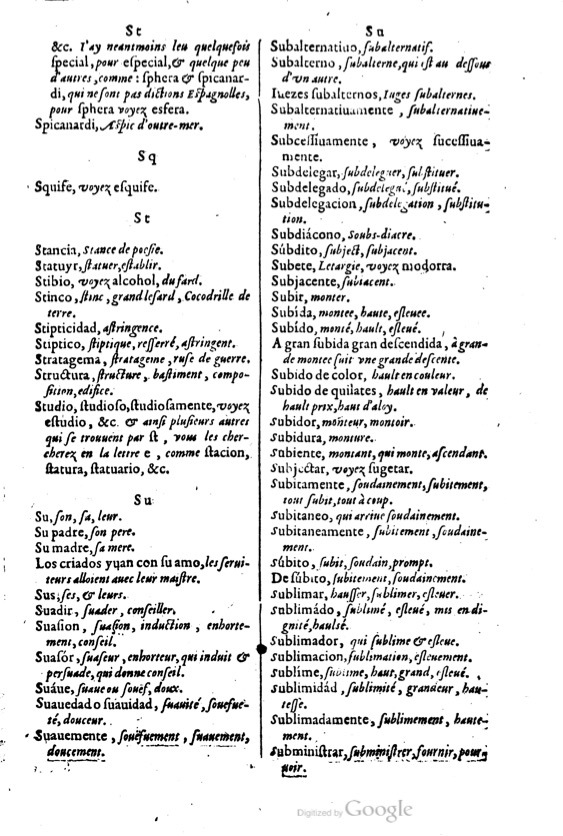 St
&c. I'ay neantmoins leu quelquefois
special, pour especial, & quelque peu
d'autres, comme : sphera & spicanar-
di, qui ne sont pas dictions Espagnolles,
pour sphera voyez esfera.
Spicanardi, Aspic d'outre-mer.
Sq
Squife, voyez esquife.
St
Stancia, Stance de poesie.
Statuyr, statuer, establir.
Stibio, voyez alcohol, du fard.
Stinco, stinc, grand lesard, Cocodrille de
terre.
Stipticidad, astringence.
Stiptico, stiptique, resserré, astringent.
Stratagema, stratageme, ruse de guerre.
Structura, structure, bastiment, compo-
sition, edifice.
Studio, studioso, studiosamente, voyez
estudio, &c. & ainsi plusieurs autres
qui se trouuent par st, vous les cher-
cherez en la lettre e, comme stacion,
statura, statuario, &c.
Su
Su, son, sa, leur.
Su padre, son pere.
Su madre, sa mere.
Los criados yuan con su amo, les serui-
teurs alloient auec leur maistre.
Sus, ses, & leurs.
Suadir, suader, conseiller.
Suasion, suasion, induction, enhorte-
ment, conseil.
Suasór, suaseur, enhorteur, qui induit &
persuade, qui donne conseil.
Suáue, suaue ou souëf, doux.
Suauedad o suauidad, suauité, souefue-
té, douceur.
Suauemente, souëfuement, suauement,
doucement.
Su
Subalternatiuo, subalternatif.
Subalterno, subalterne, qui est au dessous
d'vn autre.
Iuezes subalternos, Iuges subalternes.
Subalternatiuamente, subalternatiue-
ment.
Subcessiuamente, voyez sucessiua-
mente.
Subdelegar, subdeleguer, substituer.
Subdelegado, subdelegué, substitué.
Subdelegacion, subdelegation, substitu-
tion.
Subdiácono, Soubs-diacre.
Súbdito, subject, subjacent.
Subete, Letargie, voyez modorra.
Subjacente, subiacent.
Subir, monter.
Subída, montee, haute, esleuee.
Subído, monté, hault, esleué.
A gran subida gran descendida, à gran-
de montee suit vne grande descente.
Subido de color, hault en couleur.
Subido de quilates, hault en valeur, de
hault prix, haut d'aloy.
Subidor, monteur, montoir.
Subidura, monture.
Subiente, montant, qui monte, ascendant.
Subjectar, voyez sugetar.
Subitamente, soudainement, subitement,
tout subit, tout à coup.
Subitaneo, qui arriue soudainement.
Subitaneamente, subitement, soudaine-
ment.
Súbito, subit, soudain, prompt.
De súbito, subitement, soudainement.
Sublimar, hausser, sublimer, esleuer.
Sublimádo, sublimé, esleué, mis en di-
gnité, haulsé.
Sublimador, qui sublime & esleue.
Sublimacion, sublimation, esleuement.
Sublime, sublime, haut, grand, esleué.
Sublimidád, sublimité, grandeur, hau-
tesse.
Sublimadamente, sublimement, haute-
ment.
Subministrar, subministrer, fournir, pour-
uoir.
Digitized by Google